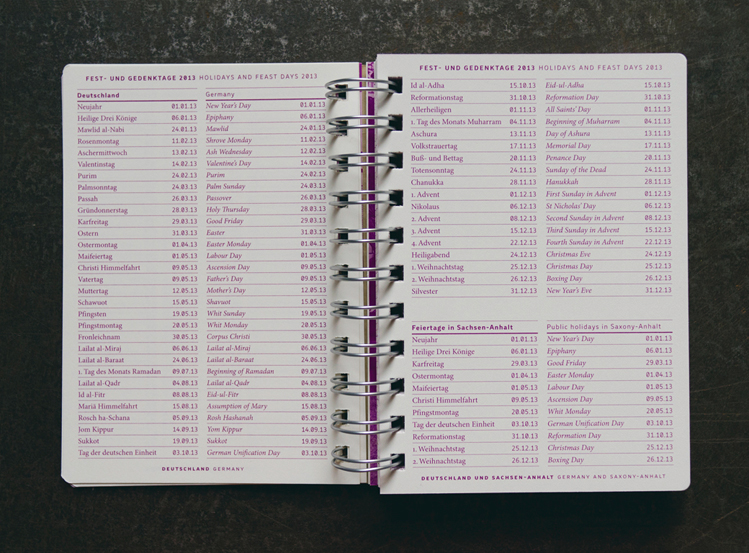 FEST- UND GEDENKTAGE 2013 HOLIDAYS AND FEAST DAYS 2013
Deutschland Germany
Neujahr 01.01.13 New Year's Day 01.01.13
Heilige Drei Könige 06.01.13 Epiphany 06.01.13
Mawlid al-Nabi 24.01.13 Mawlid 24.01.13
Rosenmontag 11.02.13 Shrove Monday 11.02.13
Aschermittwoch 13.02.13 Ash Wednesday 12.02.13
Valentinstag 14.02.13 Valentine's Day 14.02.13
Purim 24.02.13 Purim 24.02.13
Palmsonntag 24.03.13 Palm Sunday 24.03.13
Passah 26.03.13 Passover 26.03.13
Gründonnerstag 28.03.13 Holy Thursday 28.03.13
Karfreitag 29.03.13 Good Friday 29.03.13
Ostern 31.03.13 Easter 31.03.13
Ostermontag 01.04.13 Easter Monday 01.04.13
Maifeiertag 01.05.13 Labour Day 01.05.13
Christi Himmelfahrt 09.05.13 Ascension Day 09.05.13
Vatertag 09.05.13 Father's Day 09.05.13
Muttertag 12.05.13 Mother's Day 12.05.13
Schawuot 15.05.13 Shavuot 15.05.13
Pfingsten 19.05.13 Whit Sunday 19.05.13
Pfingstmontag 20.05.13 Whit Monday 20.05.13
Fronleichnam 30.05.13 Corpus Christi 30.05.13
Lailat al-Miraj 06.06.13 Lailat al-Miraj 06.06.13
Lailat al-Baraat 24.06.13 Lailat al-Baraat 24.06.13
1. Tag des Monats Ramadan 09.07.13 Beginning of Ramadan 09.07.13
Lailat al-Qadr 04.08.13 Lailat al-Qadr 04.08.13
Id al-Fitr 08.08.13 Eid-ul-Fitr 08.08.13
Mariä Himmelfahrt 15.08.13 Assumption of Mary 15.08.13
Rosch ha-Schana 05.09.13 Rosh Hashanah 05.09.13
Jom Kippur 14.09.13 Yom Kippur 14.09.13
Sukkot 19.09.13 Sukkot 19.09.13
Tag der deutschen Einheit 03.10.13 German Unification Day 03.10.13
DEUTSCHLAND GERMANY
FEST- UND GEDENKTAGE 2013 HOLIDAYS AND FEAST DAYS 2013
Id al-Adha 15.10.13 Eid-ul-Adha 15.10.13
Reformationstag 31.10.13 Reformation Day 31.10.13
Allerheiligen 01.11.13 All Saints' Day 01.11.13
1. Tag des Monats Muharram 04.11.13 Beginning of Muharram 04.11.13
Aschura 13.11.13 Day of Ashura 13.11.13
Volkstrauertag 17.11.13 Memorial Day 17.11.13
Buß- und Bettag 20.11.13 Penance Day 20.11.13
Totensonntag 24.11.13 Sunday of the Dead 24.11.13
Chanukka 28.11.13 Hanukkah 28.11.13
1. Advent 01.12.13 First Sunday in Advent 01.12.13
Nikolaus 06.12.13 St Nicholas' Day 06.12.13
2. Advent 08.12.13 Second Sunday in Advent 08.12.13
3. Advent 15.12.13 Third Sunday in Advent 15.12.13
4. Advent 22.12.13 Fourth Sunday in Advent 22.12.13
Heiligabend 24.12.13 Christmas Eve 24.12.13
1. Weihnachtstag 25.12.13 Christmas Day 25.12.13
2. Weihnachtstag 26.12.13 Boxing Day 26.12.13
Silvester 31.12.13 New Year's Eve 31.12.13
Feiertage in Sachsen-Anhalt Public holidays in Saxony-Anhalt
Neujahr 01.01.13 New Year's Day 01.01.13
Heilige Drei Könige 06.01.13 Epiphany 06.01.13
Karfreitag 29.03.13 Good Friday 29.03.13
Ostermontag 01.04.13 Easter Monday 01.04.13
Maifeiertag 01.05.13 Labour Day 01.05.13
Christi Himmelfahrt 09.05.13 Ascension Day 09.05.13
Pfingstmontag 20.05.13 Whit Monday 20.05.13
Tag der deutschen Einheit 03.10.13 German Unification Day 03.10.13
Reformationstag 31.10.13 Reformation Day 31.10.13
1. Weihnachtstag 25.12.13 Christmas Day 25.12.13
2. Weihnachtstag 26.12.13 Boxing Day 26.12.13
DEUTSCHLAND UND SACHSEN-ANHALT GERMANY AND SAXONY-ANHALT